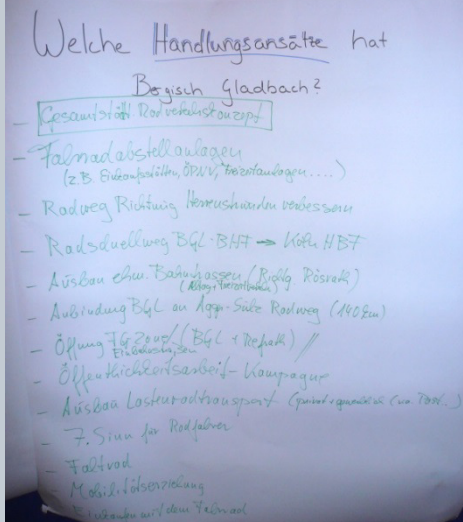 Welche Handlungsansätze hat
Bergisch Gladbach?
- Gesamtstädt Radverkehrskonzept
- Fahrradabstellanlagen
(z.B. Einkaufsstätten, ÖPNV, Freizeitanlagen....)
- Radweg Richtung Herrenstrunden verbessern
- Radschnellweg BGL-BHF → Köln HBF
- Ausbau ehm. Bahntrassen (Richtg Rösrath)
- Anbindung BGL an Agger-Sülz Radweg (140 km)
- Öffnung FG Zone/ (BGL + Refrath)
Einbahnstraßen
- Öffentlichkeitsarbeit - Kampagne
- Ausbau Lastenradtransport (privat + gewerblich
- 7. Sinn für Radfahrer
- Faltrad
- Mobilitätserziehung
- Einkaufen mit dem Fahrrad